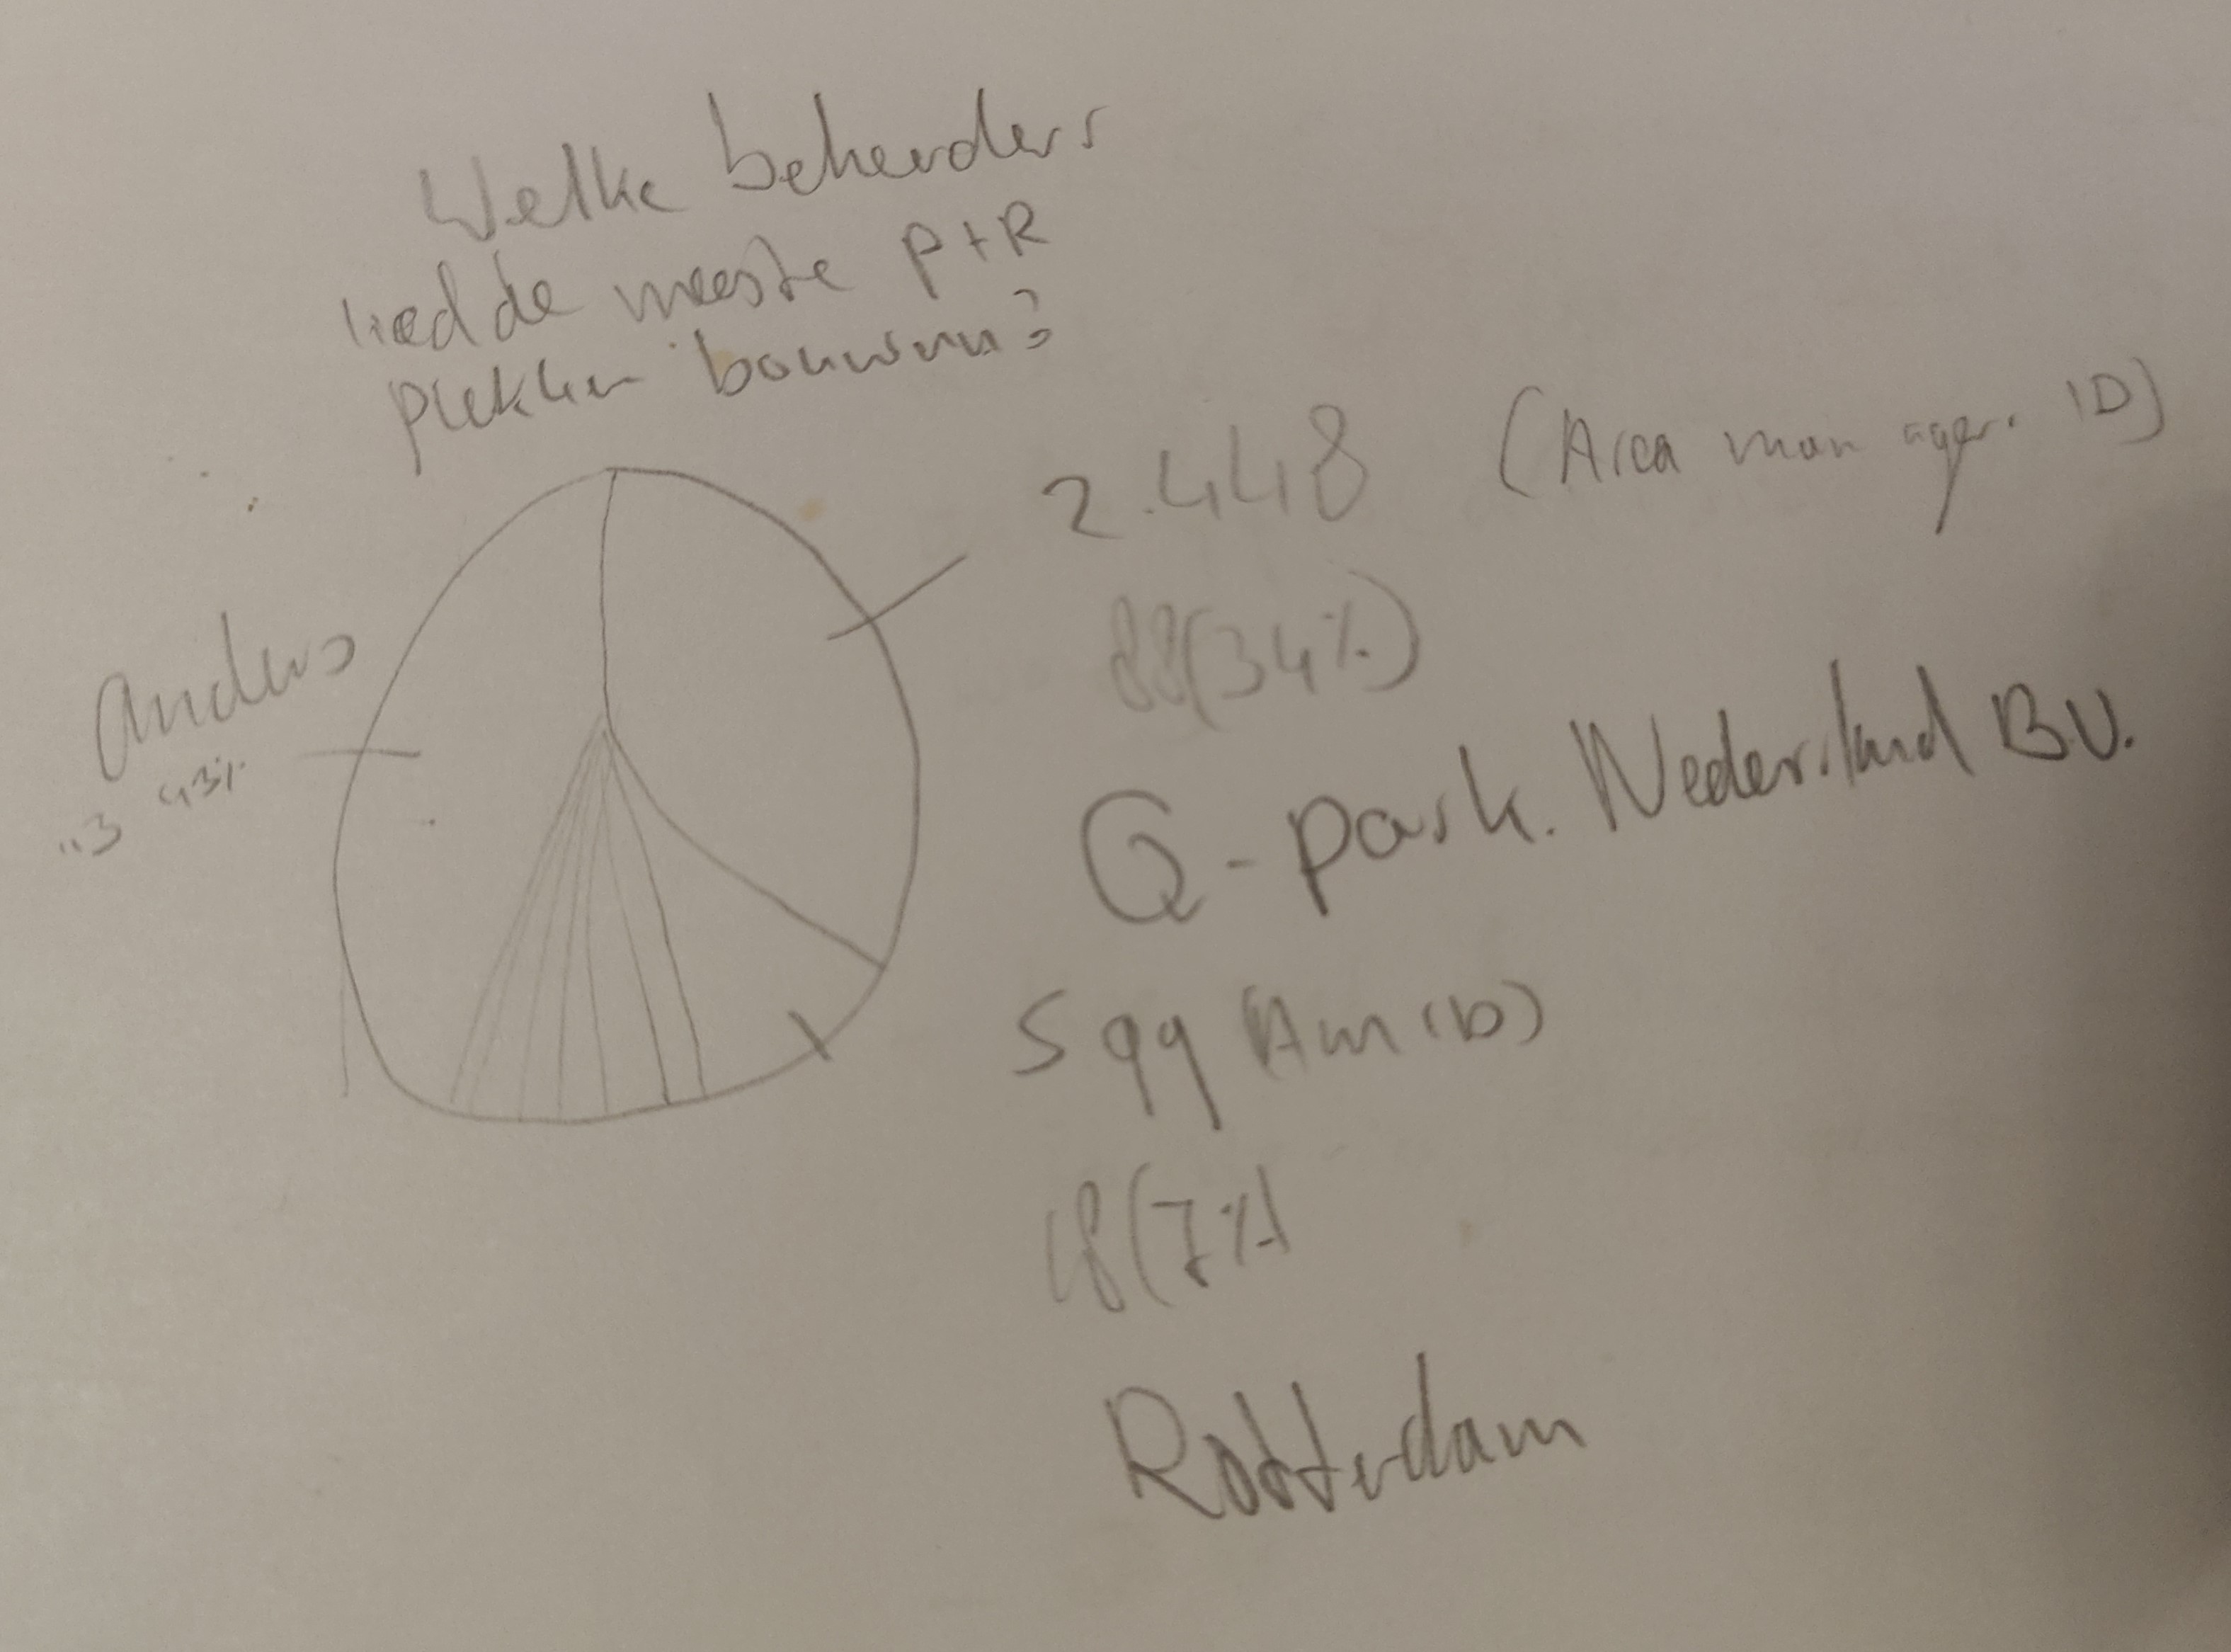 Welke beheerders
de meeste P+R
plekken
2.448 (Area manager. ID)
88(34%)
anders
Q-park. Nederland B.V.
599 (Am ID)
18(7%)
Rotterdam